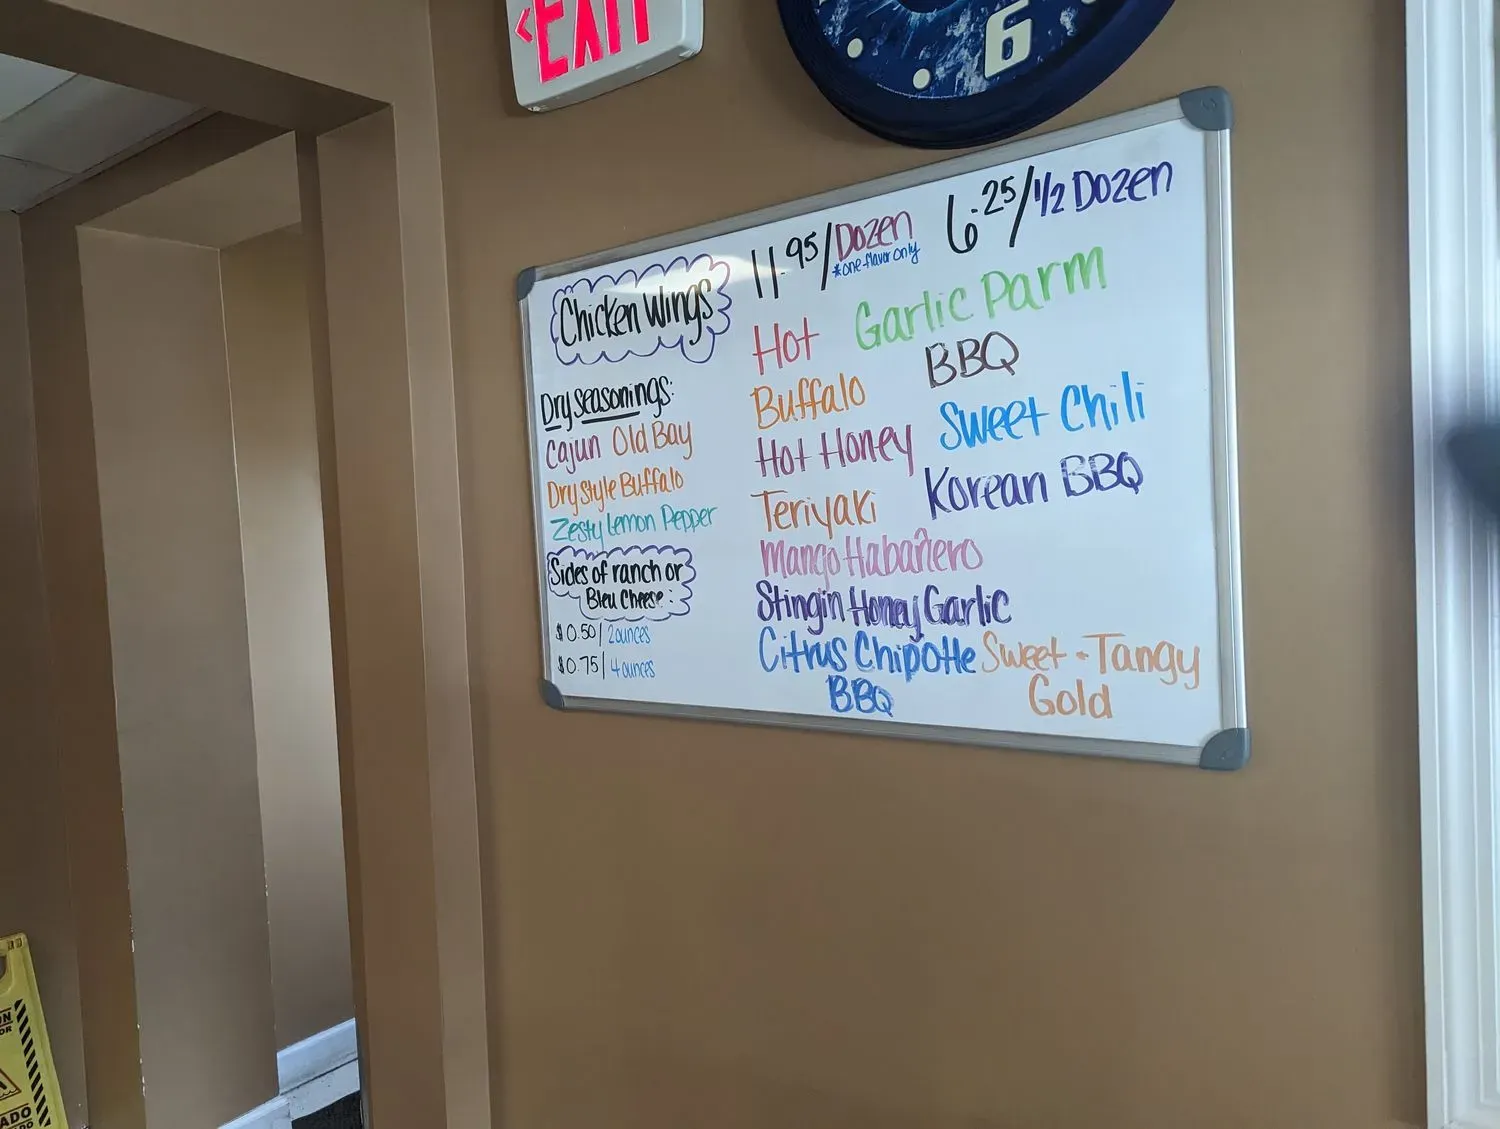 <EXIT
6
Chicken Wings
11.95/Dozen
*one flavor only
6.25/1/2 Dozen
Dry Seasonings:
Cajun Old Bay
Dry Style Buffalo
Zesty Lemon Pepper
Sides of ranch or
Bleu Cheese:
$0.50/2 ounces
$0.75/4 ounces
Hot Garlic Parm
BBQ
Buffalo
Sweet Chili
Hot Honey
Korean BBQ
Teriyaki
Mango Habañero
Stingin Honey Garlic
Citrus Chipotle
BBQ
Sweet - Tangy
Gold